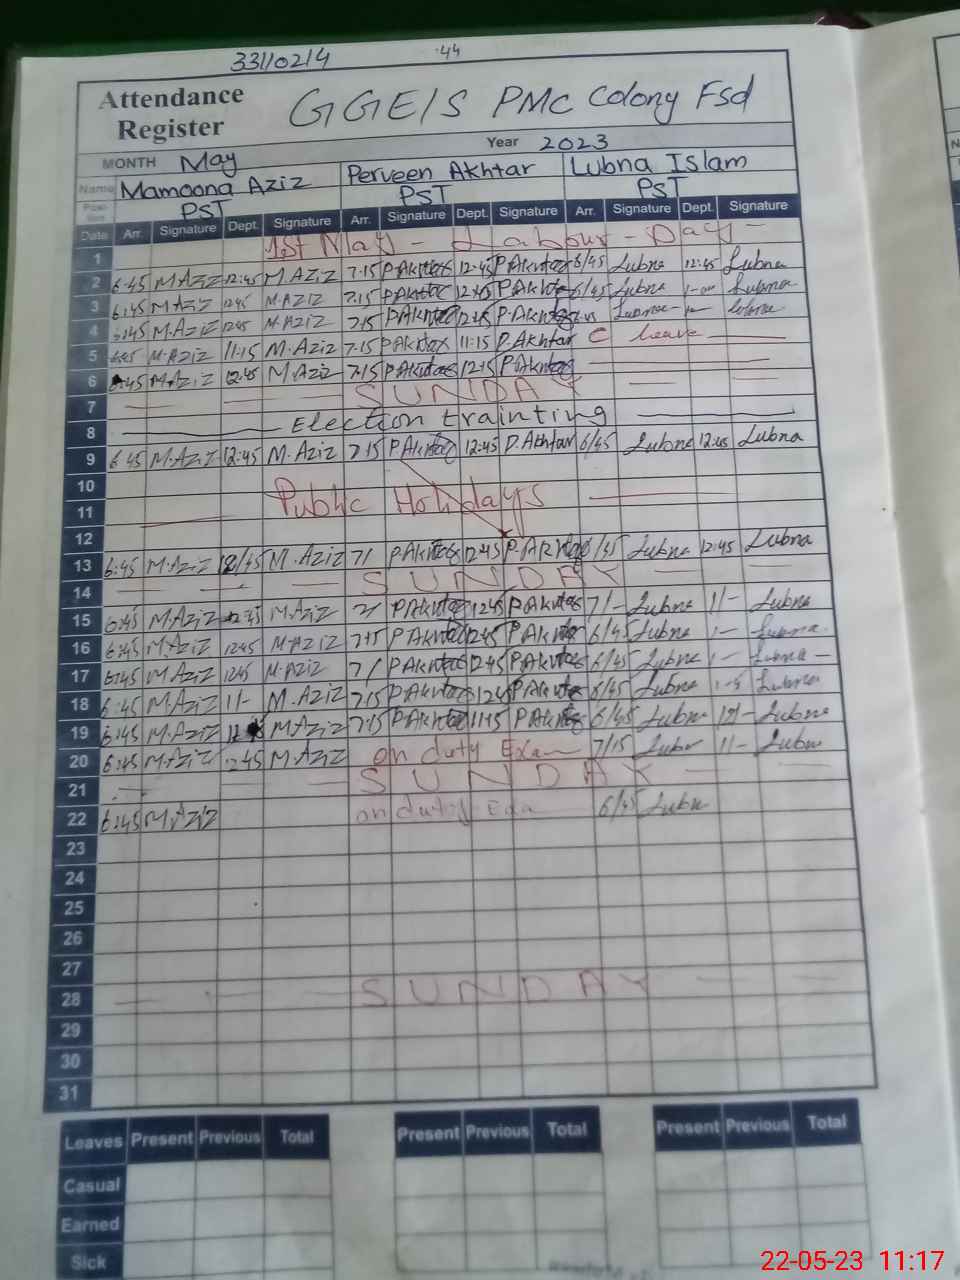 33110214 44
Attendance
Register
GGE/S PMC Colony Fsd
Year 2023
MONTH May
Name Mamoona Aziz Perveen Akhtar Lubna Islam
Position PST PST PST
Date Arr. Signature Dept. Signature Arr. Signature Dept. Signature Arr. Signature Dept. Signature
1 1st May - Labour - Day -
2 6:45 M.Aziz 12:45 M.Aziz 7:15 PAkhtar 12:45 PAkhtar 6/45 Lubna 12:45 Lubna
3 6:45 M.Aziz 1245 M.AZIZ 7:15 PAkhtar 12:45 P.Akhtar 6/45 Lubna Lubna
4 M.AZIZ 1245 M.AZIZ 715 PAkhtar P.Akhtar Lubna Lubna
5 6:45 M.AZIZ 11:15 M.Aziz 7-15 PAkhtar 11:15 P.Akhtar C leave
6 M.Aziz 12:45 M.Aziz 7:15 PAkhtar 12:15 P.Akhtar
7 SUNDAY
8 Election trainting
9 6:45 M.AZIZ 12:45 M.Aziz 7:15 PAkhtar 12:45 P.Akhtar 6/45 Lubna 12:45 Lubna
10
11 Public Holidays
12
13 6:45 M.AZIZ M.Aziz 7/ PAkhtar 12:45 6/45 Lubna 12:45 Lubna
14 SUNDAY
15 6:45 M.AZIZ M.AZIZ PAkhtar 1245 PAkhtar 7/- Lubna 1/- Lubna
16 6:45 M.AZIZ 1245 M.AZIZ 7:15 PAkhtar 1245 PAkhtar 6/45 Lubna 1- Lubna
17 6:45 M.AZIZ 1245 M.AZIZ 7/ PAkhtar 1245 PAkhtar 6/45 Lubna 1- Lubna
18 6:45 M.AZIZ 11- M.AZIZ 7:15 PAkhtar PAkhtar 6/45 Lubna Lubna
19 6:45 M.AZIZ M.Aziz 7:15 PAkhtar 1115 PAkhtar 6/45 Lubna Lubna
20 6:45 M.AZIZ M.Aziz on duty Exam 7/15 Lubna 11- Lubna
21 SUNDAY
22 6:45 M.AZIZ on duty Exa 6/45 Lubna
23
24
25
26
27
28 SUNDAY
29
30
31
Leaves Present Previous Total Present Previous Total Present Previous Total
Casual
Earned
Sick
22-05-23 11:17